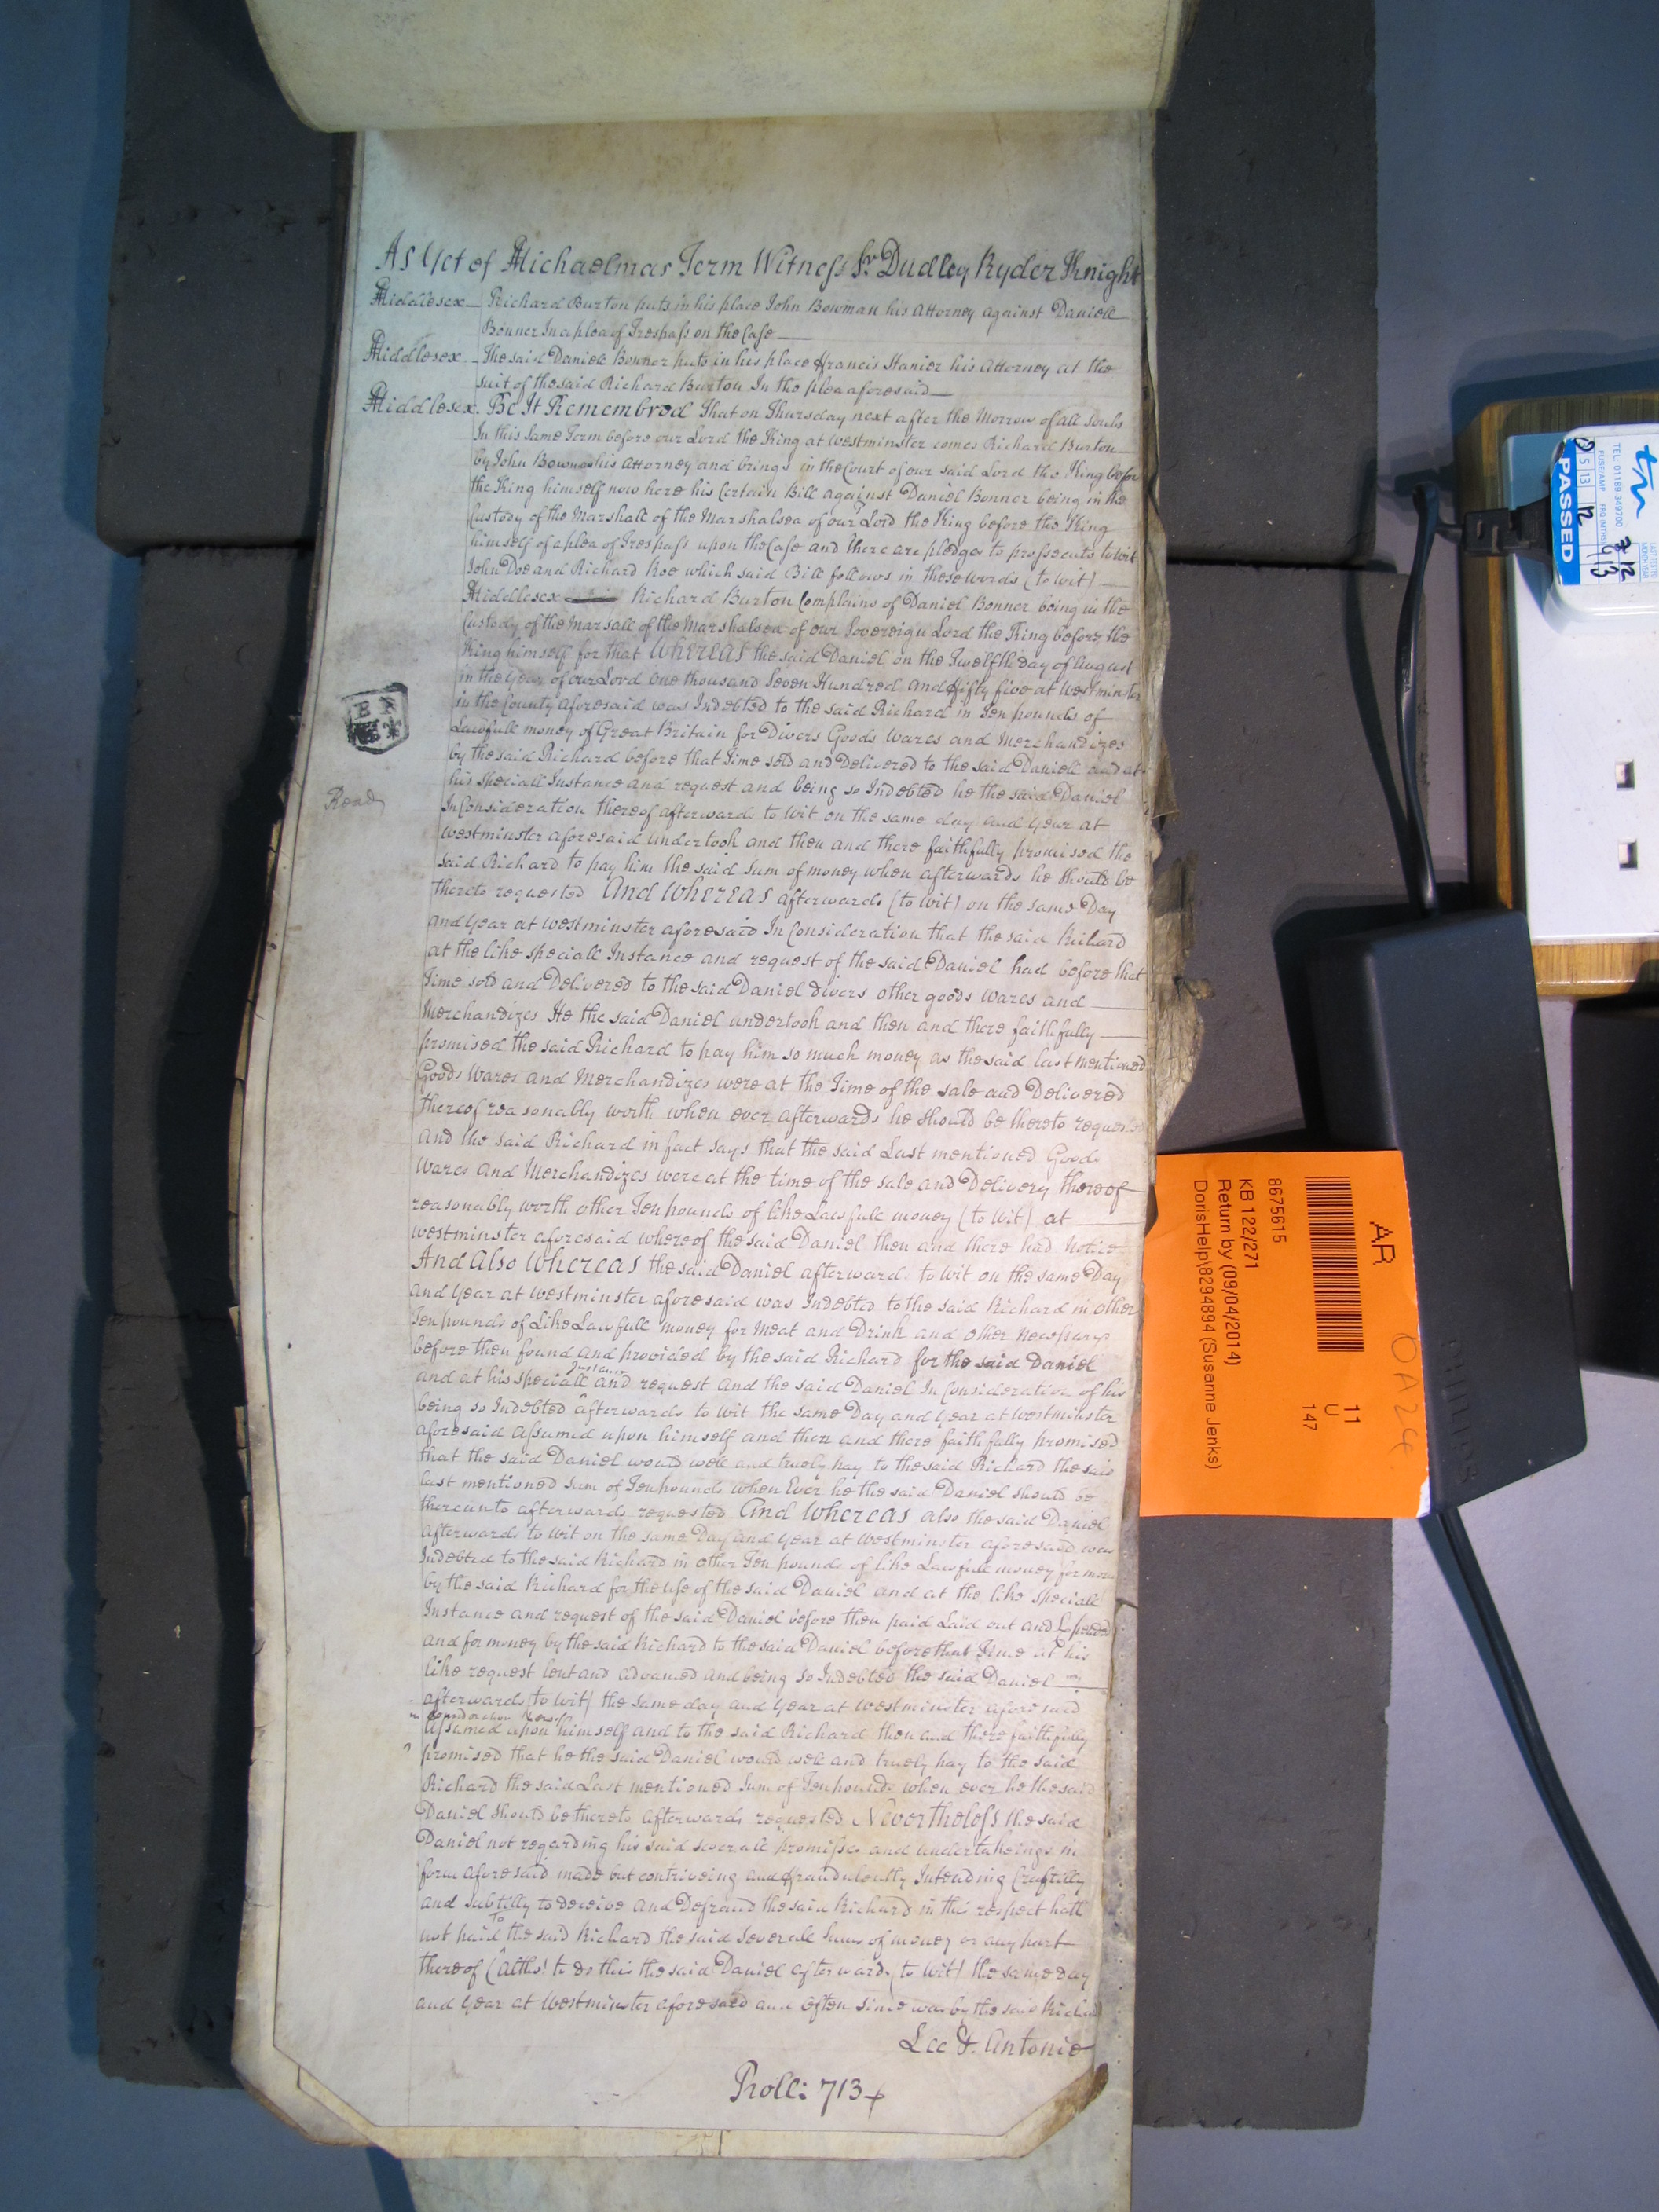 As Yet of Michaelmas Term Witness Sr. Dudley Ryder Knight
Middlesex Richard Burton puts in his place John Bowman his Attorney against Daniell
Bonner In a plea of Trespass on the Case
Middlesex The said Daniell Bonner puts in his place ffrancis Stanier his Attorney at the
suit of the said Richard Burton In the plea aforesaid
Middlesex. Be It Remembred That on Thursday next after the Morrow of all Souls
In this same Term before our Lord the King at Westminster comes Richard Burton
by John Bowman his Attorney and brings in the Court of our said Lord the King before
the King himself now here his Certain Bill against Daniel Bonner being in the
Custody of the Marshall of the Marshalsea of our Lord the King before the King
himself of a plea of Trespass upon the Case and there are pledges to prossecute to wit
John Doe and Richard Roe which said Bill follows in these words (to wit)
Middlesex Richard Burton Complains of Daniel Bonner being in the
Custody of the Marsall of the Marshalsea of our Sovereign Lord the King before the
King himself for that Whereas the said Daniel on the Twelfth day of August
in the Year of our Lord One thousand Seven Hundred and ffifty five at Westminster
in the County aforesaid was Indebted to the said Richard in Ten pounds of
Lawfull money of Great Britain for Divers Goods Wares and Merchandizes
by the said Richard before that Time sold and Delivered to the said Daniell and at
his speciall Instance and request and being so Indebted he the said Daniel
In Consideration thereof afterwards to wit on the same day and Year at
Westminster aforesaid undertook and then and there faithfully promised the
said Richard to pay him the said Sum of money when afterwards he should be
thereto requested And Whereas afterwards (to wit) on the same Day
and Year at Westminster aforesaid In Consideration that the said Richard
at the like speciall Instance and request of the said Daniel had before that
Time sold and Delivered to the said Daniel divers other goods Wares and
Merchandizes He the said Daniel undertook and then and there faithfully
promised the said Richard to pay him so much money as the said last mentioned
Goods Wares and Merchandizes were at the Time of the sale and Delivered
thereof reasonably worth when ever afterwards he should be thereto requested
And the said Richard in fact says that the said Last mentioned Goods
Wares and Merchandizes were at the time of the sale and Delivery thereof
reasonably worth other Ten pounds of like Lawfull money (to wit) at
Westminster aforesaid whereof the said Daniel then and there had Notice
And Also Whereas the said Daniel afterwards to wit on the same Day
and Year at Westminster aforesaid was Indebted to the said Richard in other
Ten pounds of Like Lawfull money for Meat and Drink and other Necessarys
before then found and provided by the said Richard for the said Daniel
and at his speciall Instance and request and the said Daniel In Consideration of his
being so Indebted afterwards to wit the same Day and Year at Westminster
aforesaid Assumed upon himself and then and there faithfully promised
that the said Daniel would well and truely pay to the said Richard the said
last mentioned Sum of Ten pounds when Ever he the said Daniel should be
thereunto afterwards requested And Whereas also the said Daniel
Afterwards to wit on the same Day and Year at Westminster aforesaid was
Indebted to the said Richard in other Ten pounds of like Lawfull money for money
by the said Richard for the use of the said Daniel and at the like speciall
Instance and request of the said Daniel before then paid Laid out and Expended
and for money by the said Richard to the said Daniel before that Time at his
like request lent and advanced and being so Indebted the said Daniel
afterwards (to wit) the same day and Year at Westminster aforesaid
in Consideration thereof
Assumed upon himself and to the said Richard then and there faithfully
promised that he the said Daniel would well and truely pay to the said
Richard the said Last mentioned Sum of Ten pounds when ever he the said
Daniel should be thereto afterwards requested Nevertheless the said
Daniel not regarding his said severall promisses and undertakeings in
form aforesaid made but contriveing and ffraudulently Intending Craftily
and subtilly to deceive and Defraud the said Richard in this respect hath
not paid To the said Richard the said Severall Sums of money or any part
thereof (Altho' to do this the said Daniel afterwards (to wit) the same day
and Year at Westminster aforesaid and often since was by the said Richard
Lee & Antonie
Roll: 713
Read
AR
8675615
KB 122/271
Return by (09/04/2014)
DorisHelp\8294894 (Susanne Jenks)
11
U
147
OA24
PASSED
TEL: 01189 349700